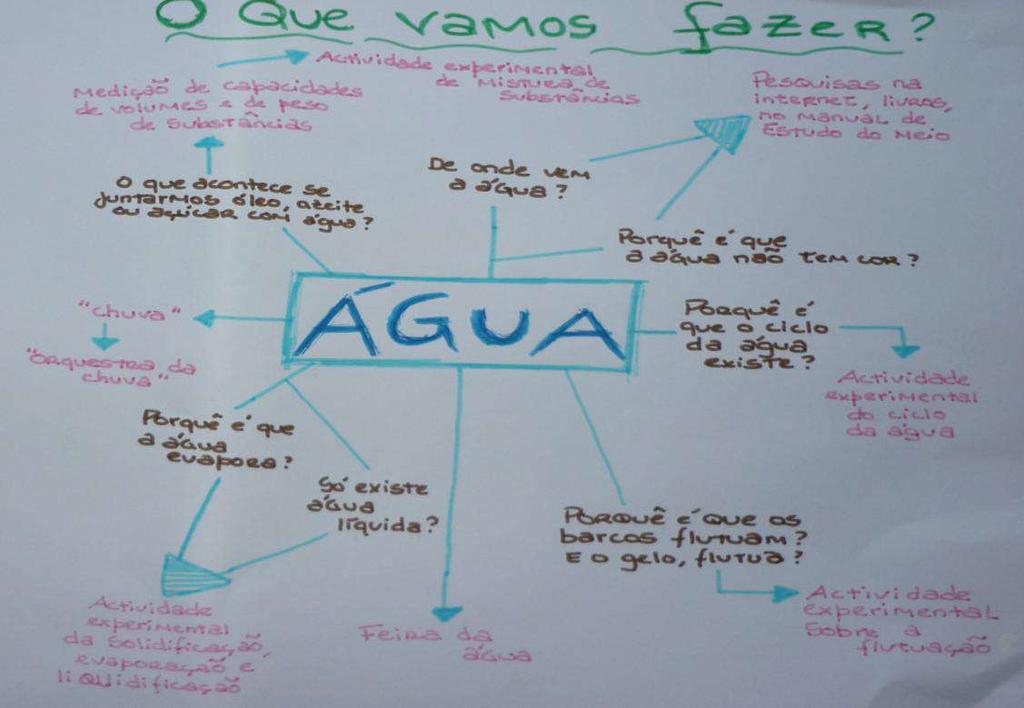 O que vamos fazer?
Medição de capacidades
de volumes e de peso
de substâncias
Actividade experimental
de mistura de
substâncias
Pesquisas na
internet, livros,
no manual de
Estudo do Meio
O que acontece se
juntarmos óleo, azeite
ou açúcar com água?
De onde vem
a água?
Porquê é que
a água não tem cor?
ÁGUA
"chuva"
"Orquestra da
chuva"
Porquê é
que o ciclo
da água
existe?
Actividade
experimental
do ciclo
da água
Porquê é que
a água
evapora?
Só existe
água
líquida?
Porquê é que os
barcos flutuam?
E o gelo, flutua?
Actividade
experimental
da solidificação,
evaporação e
liquidificação
Feira da
água
Actividade
experimental
sobre a
flutuação